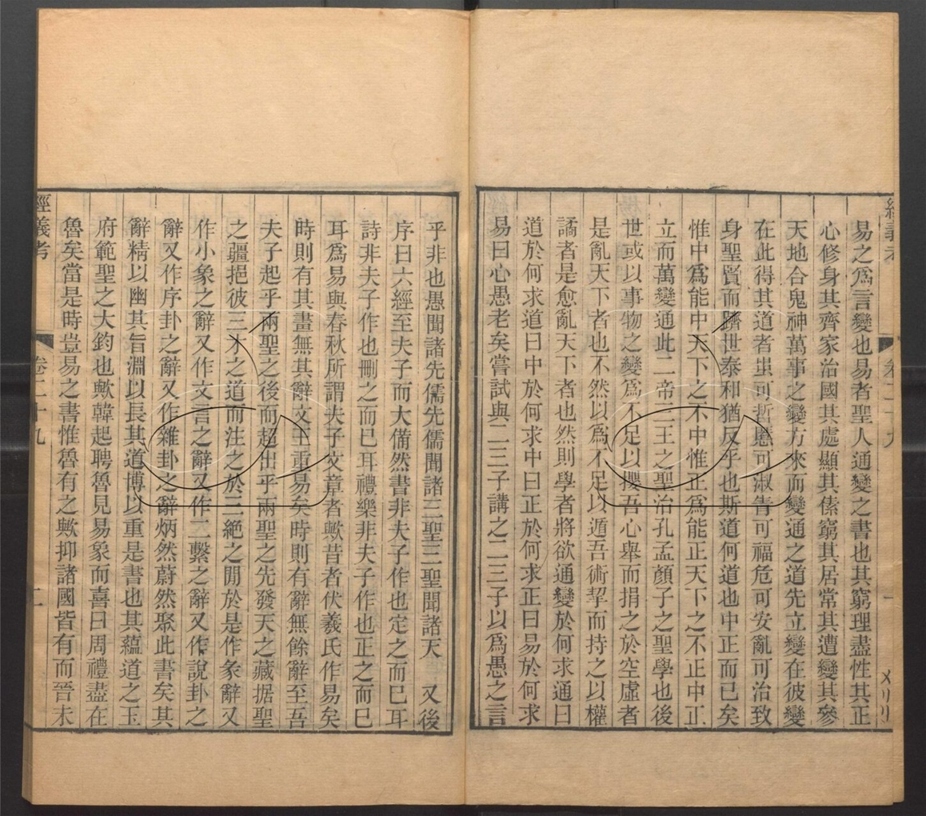 易之爲言變也易者聖人通變之書也其窮理盡性其正
心修身其齊家治國其處顯其傃窮其居常其遭變其參
天地合鬼神萬事之變方來而變通之道先立變在彼變
在此得其道者蚩可哲慝可淑眚可福危可安亂可治致
身聖賢而躋世泰和猶反乎也斯道何道也中正而已矣
惟中爲能中天下之不中惟正爲能正天下之不正中正
立而萬變通此二帝三王之聖治孔孟顏子之聖學也後
世或以事物之變爲不足以攖吾心舉而捐之於空虛者
是亂天下者也不然以爲不足以遁吾術挈而持之以權
譎者是愈亂天下者也然則學者將欲通變於何求通曰
道於何求道曰中於何求中曰正於何求正曰易於何求
易曰心愚老矣嘗試與二三子講之二三子以爲愚之言
乎非也愚聞諸先儒先儒聞諸三聖三聖聞諸天 又後
序曰六經至夫子而大備然書非夫子作也定之而已耳
詩非夫子作也刪之而已耳禮樂非夫子作也正之而已
耳爲易與春秋所謂夫子文章者歟昔者伏羲氏作易矣
時則有其畫無其辭文王重易矣時則有辭無餘辭至吾
夫子起乎兩聖之後而超出乎兩聖之先發天之藏据聖
之疆挹彼三才之道而注之於三絕之閒於是作彖辭又
作小象之辭又作文言之辭又作二繫之辭又作說卦之
辭又作序卦之辭又作雜卦之辭炳然蔚然聚此書矣其
辭精以幽其旨淵以長其道博以重是書也其蘊道之玉
府範聖之大鈞也歟韓起聘魯見易象而喜曰周禮盡在
魯矣當是時豈易之書惟魯有之歟抑諸國皆有而晉未
經義考 卷二十九 二